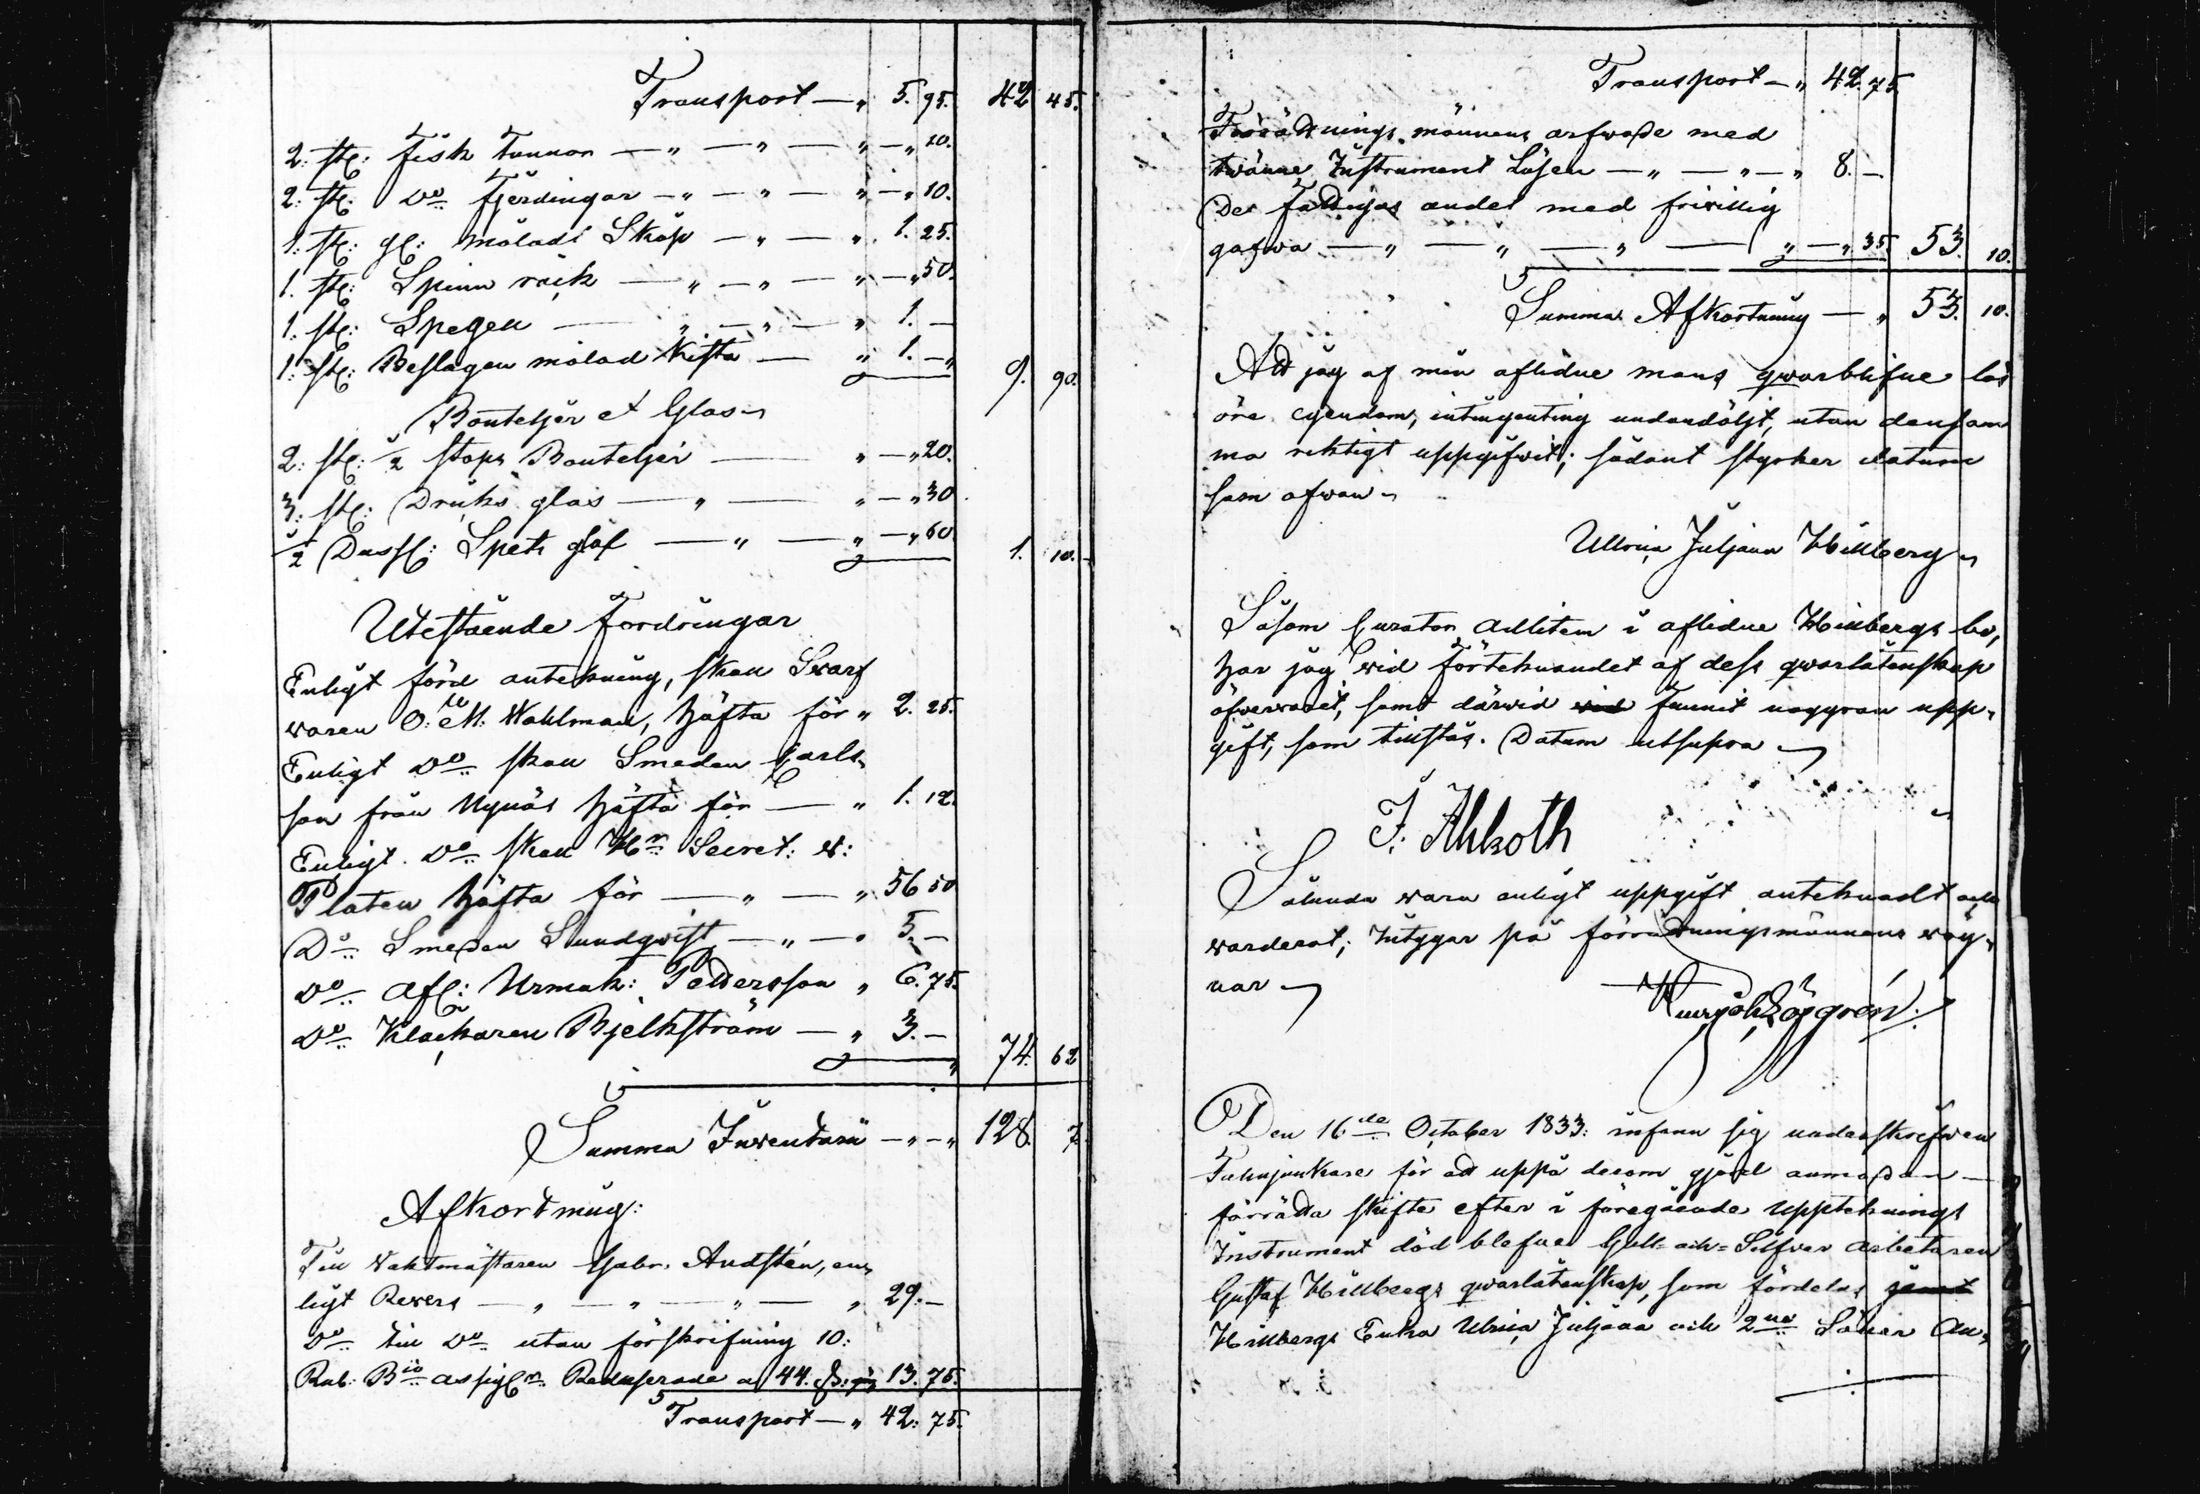 Transport — „ 5. 95. 42. 45.
2: st: fisk Tunnor — „ — „ — „ — „ 20.
2: st: Do fjerdingar — „ — „ — „ — „ 10.
1: st: gl: måladt Skåp — „ — „ 1. 25.
1. st: Spinn råck — „ — „ — „ — „ 50.
1. st: Spegel — „ — „ — „ 1. —
1: st: Beslagen målad Kista — „ 1. — „ 9. 90.
Bouteljer et Glas
2: st: 1/2 stops Bouteljer — „ — „ 20.
3: st: Dricks glas — „ — „ — „ 30.
1/2 Duss: Spets glas — „ — „ — „ 60. 1. 10.
Utestående Fordringar
Enligt förd antekning, skall Swarf
waren O: M. Wahlman, häfta för „ 2. 25.
Enligt Do skall Smeden Carls
son från Nynäs häfta för — „ 1. 12.
Enligt Do skall Hr Secret: v:
Platen häfta för — „ — „ 56. 50.
Do Smeden Lundqvist — „ — „ 5. —
Do Afl: Urmak: Pettersson „ 6. 75.
Do Klåckaren Bjelkström — „ 3. — 74. 62
Summa Inventarii — „ — „ 128. 7.
Afkortning:
Till Vaktmästaren Gabr. Audstén, en,
ligt Revers — „ — „ — „ — „ 29. —
Do till Do utan förskrifning 10:
Rub: Bco assign Reducerade a 44. 13. 75.
Transport — „ 42. 75.
Transport — „ 42. 75.
Förrättnings männens arfwode med
twänne Instrument Lösen — „ — „ — „ 8. —
De fattigas andel med friwillig
gafwa — „ — „ — „ — „ — „ 35. 53. 10.
Summa Afkortning — „ 53. 10.
Att jag af min aflidne mans qwarblifne lös
öre egendom, intingenting undandöljt, utan densam
ma riktigt uppgifwit; sådant styrker datum
som ofwan
Ulrica Juljana Hillberg
Såsom Curator Adlitem i aflidne Hillbergs bo,
har jag wid förteknandet af dess qwarlåtenskap
öfwerwarit, samt därwid wid funnit noggran upp,
gift, som tillstås. Datum utsupra
J. Ahlroth
Sålunda wara enligt uppgift anteknadt och
warderat; intygar på förrättningsmännens wäg,
nar
Den 16de October 1833: infann sig underskrifwen
Fanjunkare för att uppå derom gjord anmodan —
förrätta skifte efter i föregående Upptecknings
Instrument död blefne Guld- och Silfver arbetaren
Gustaf Hillbergs qwarlåtenskap, som fördelas jemt
Hillbergs Enka Ulrica Juljana och 2ne Söner An,